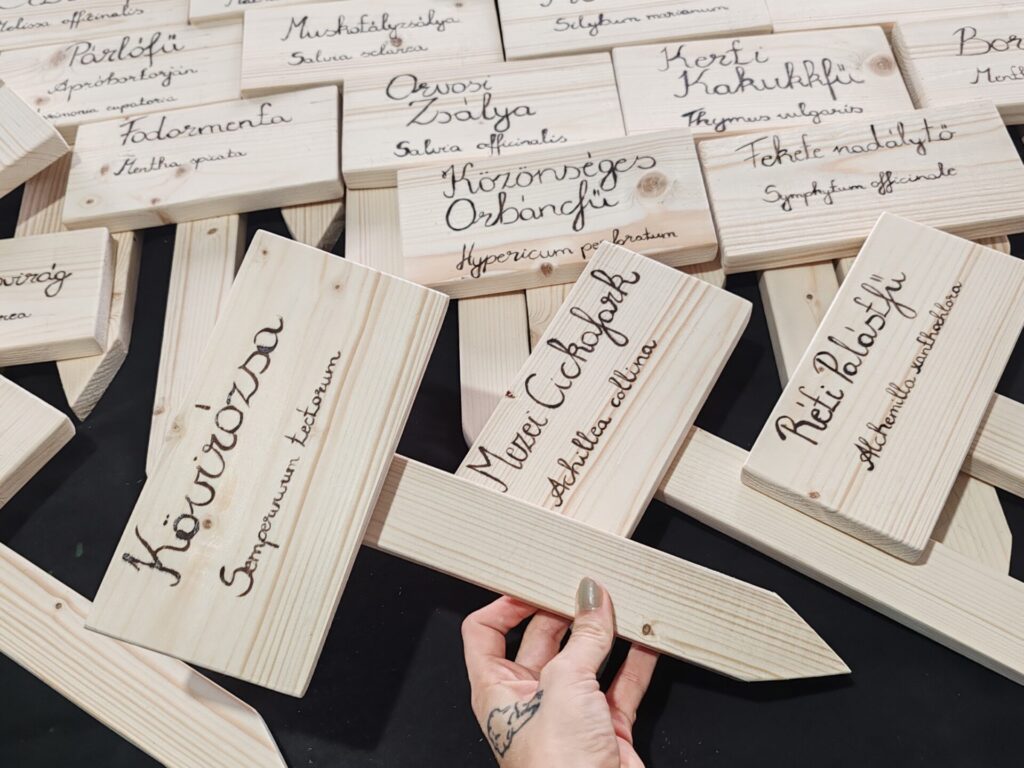 Melissa officinalis
Muskotályzsálya
Salvia sclarea
Silybum marianum
Párlófű
Apróbojtorján
eupatoria
Kerti
Kakukkfű
Thymus vulgaris
Orvosi
Zsálya
Salvia officinalis
Fodormenta
Mentha spicata
Közönséges
Orbáncfű
Hypericum perforatum
Fekete nadálytő
Symphytum officinale
Kövirózsa
Sempervivum tectorum
Mezei Cickafark
Achillea collina
Réti Palástfű
Alchemilla xanthochlora